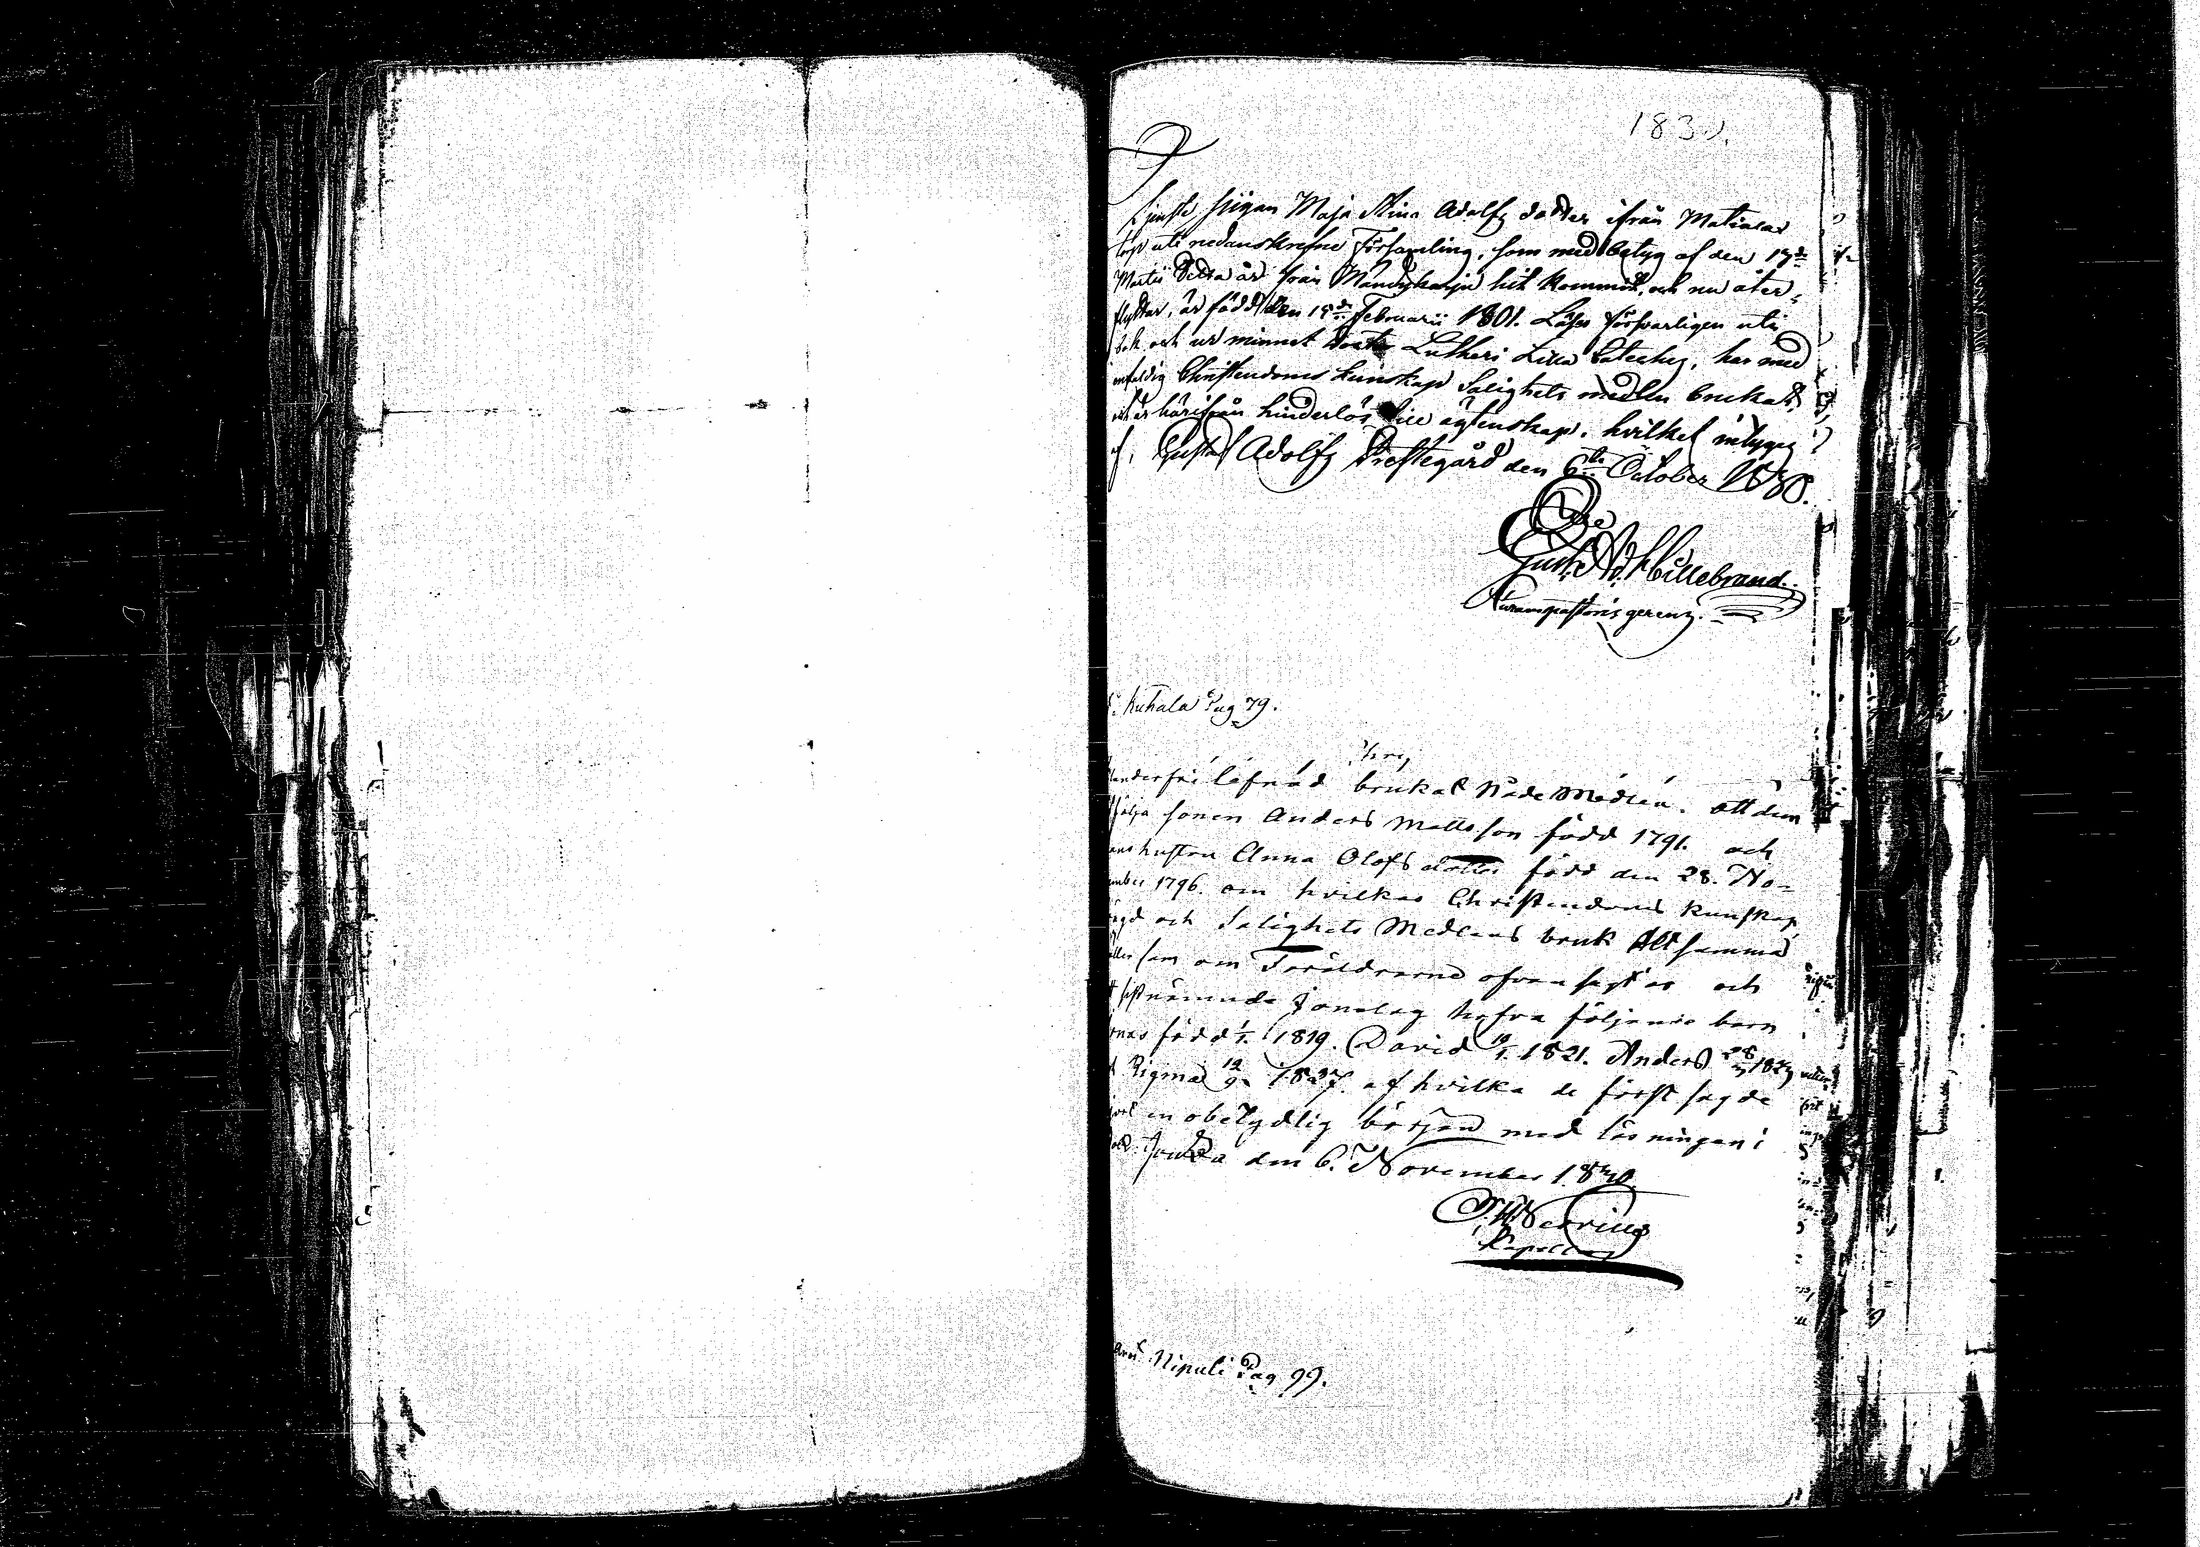 1830.
Tjenste pigan Maja Stina Adolfs dotter ifrån Matialax
torp uti nedanskrefne Församling, som med betyg af den 17de
Martii detta år från Mäntyharju hit kommit, och nu åter-
flyttar, är född den 15de Februarii 1801. Läser försvarligen uti
bok och ur minnet Lutheri Lilla Cateches, har med
enfaldig Christendoms kunskap Salighets medlen brukat,
och är härifrån hinderlös till ägtenskap, hvilket intygas
af, Gustaf Adolfs Prestegård den 6te October 1830.
Gust. Ad. Hillebrand.
pastoris gerens.
Kuhala Pag 79.
klanderfri lefnad brukat Nåde Medlen. att dem
följa sonen Anders Mattsson född 1791. och
hans hustru Anna Olofs dotter född den 28. No-
vember 1796. om hvilkas Christendoms kunskap,
och Salighets Medlens bruk Alt samma
gäller som om Föräldrarne ofvan sagt är och
sistnämnda Jonelag hafva följande barn
född 1/1. 1819. David 19/1. 1821. Anders 28/ 182
Rigina 12/9. 1827. af hvilka de först sagde
gjort en obetydlig början med läsningen i
bok. Joutsa den 6. November 1830.
Kapellan
Nipuli Pag 99.